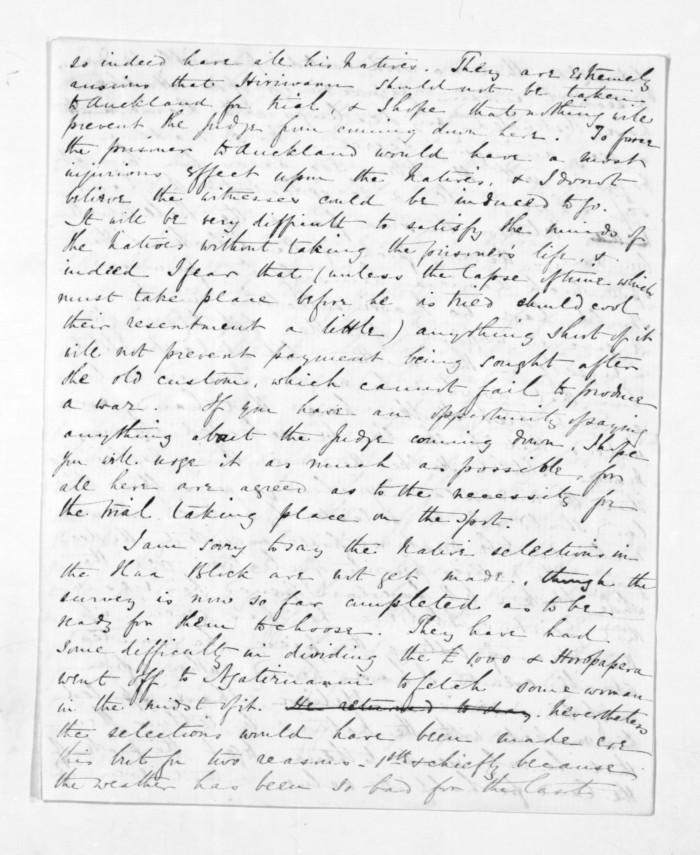 so indeed have all his Natives. They are Extremely
anxious that Hiriwanu should not be taken
to Auckland for trial, & I hope that nothing will
prevent the Judge from coming down here. To force
the prisoner to Auckland would have a most
injurious effect upon the Natives, & I do not
believe the witnesses could be induced to go.
It will be very difficult to satisfy the minds of
the Natives without taking the prisoner's life, &
indeed I fear that (unless the lapse of time which
must take place before he is tried should cool
their resentment a little) anything short of it
will not prevent payment being sought after
the old custom, which cannot fail to produce
a war. If you have an opportunity of saying
anything about the Judge coming down, I hope
you will urge it as much as possible, for
all here are agreed as to the necessity for
the trial taking place on the spot.
I am sorry to say the Native selections in
the Hua Block are not yet made, though the
survey is now so far completed as to be
ready for them to choose. They have had
some difficulty in dividing the £1000 &
went off to to fetch some woman
in the midst of it. He returned to day. Nevertheless
the selections would have been made ere
this but for two reasons - 1st & chiefly because
the weather has been so bad for the last